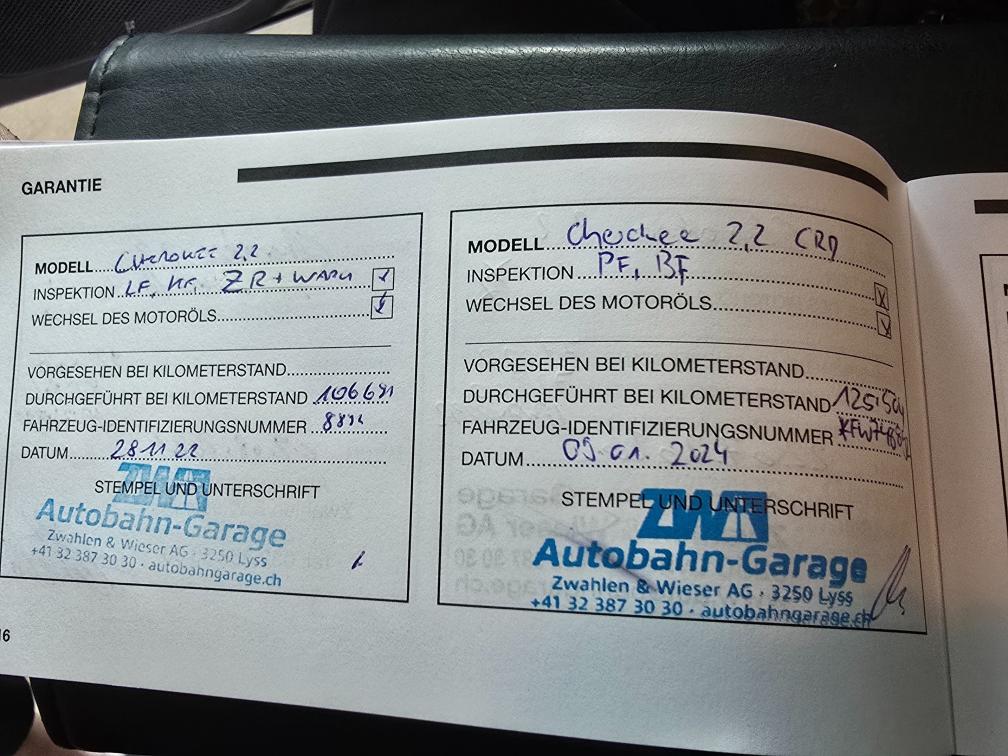 GARANTIE
MODELL.... Cherokee 2,2
INSPEKTION.. LF, KF, ZR + WAPU
WECHSEL DES MOTORÖLS
VORGESEHEN BEI KILOMETERSTAND
DURCHGEFÜHRT BEI KILOMETERSTAND 106691
FAHRZEUG-IDENTIFIZIERUNGSNUMMER
DATUM.... 28 11 22
STEMPEL UND UNTERSCHRIFT
ZWA
Autobahn-Garage
Zwahlen & Wieser AG · 3250 Lyss
+41 32 387 30 30 · autobahngarage.ch
16
MODELL... Cherokee 2,2 CRD
INSPEKTION... PF, BF
WECHSEL DES MOTORÖLS
VORGESEHEN BEI KILOMETERSTAND
DURCHGEFÜHRT BEI KILOMETERSTAND
FAHRZEUG-IDENTIFIZIERUNGSNUMMER
DATUM.... 09.01. 2024
STEMPEL UND UNTERSCHRIFT
ZWA
Autobahn-Garage
Zwahlen & Wieser AG · 3250 Lyss
+41 32 387 30 30 · autobahngarage.ch